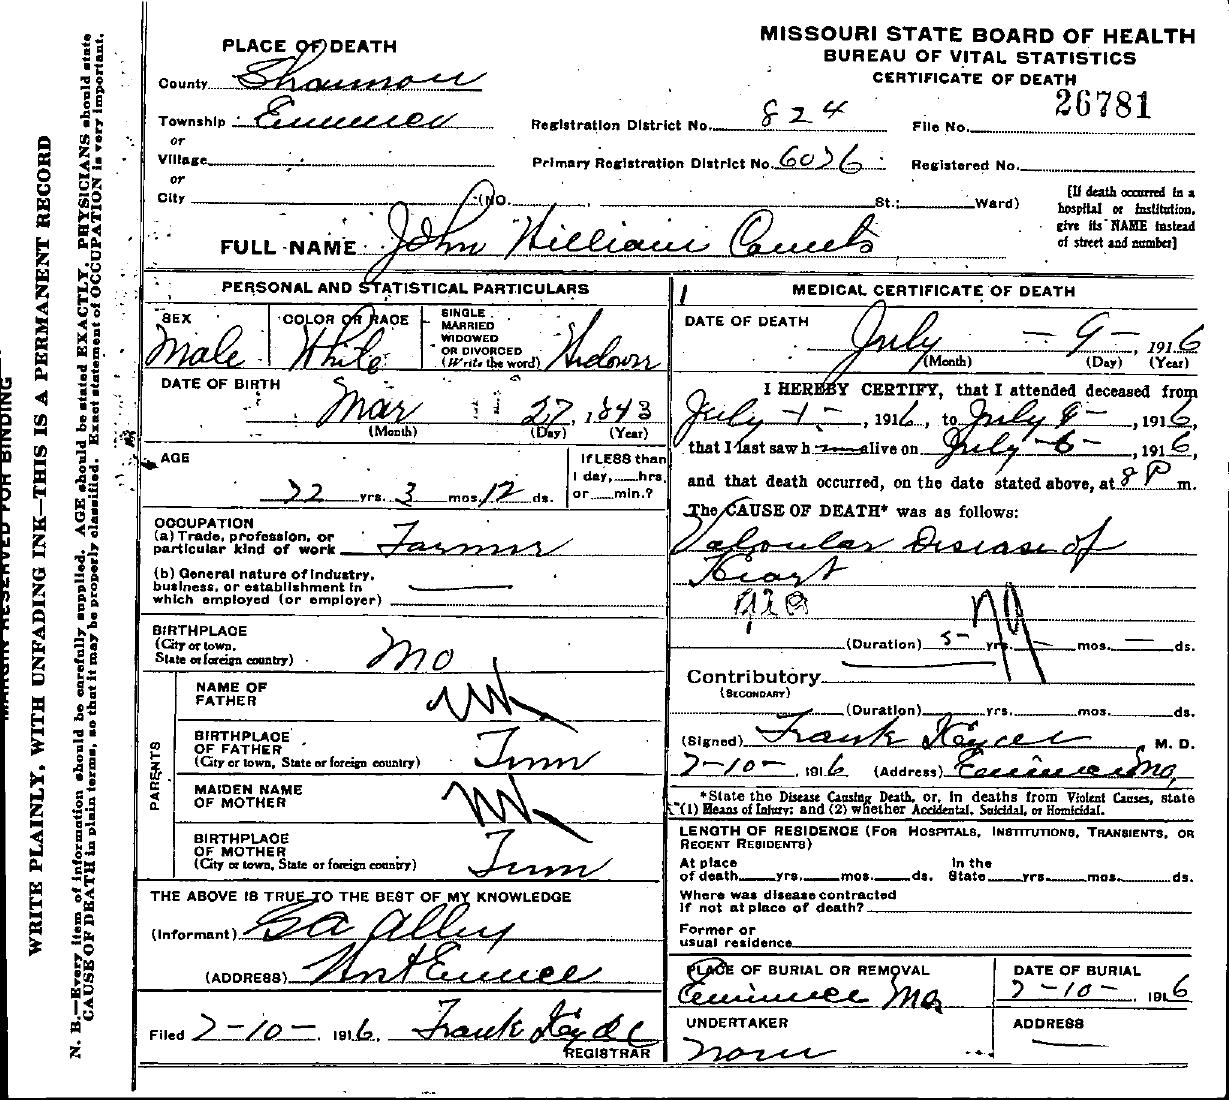 MISSOURI STATE BOARD OF HEALTH
BUREAU OF VITAL STATISTICS
CERTIFICATE OF DEATH
26781
PLACE OF DEATH
County Shannon
Township Eminence
or
Village
or
City (No. St.; Ward)
Registration District No. 824 File No.
Primary Registration District No. 6036 Registered No.
[If death occurred in a
hospital or institution,
give its NAME instead
of street and number]
FULL NAME John William
PERSONAL AND STATISTICAL PARTICULARS
SEX
Male
COLOR OR RACE
White
SINGLE
MARRIED
WIDOWED
OR DIVORCED
(Write the word) Widower
DATE OF BIRTH
Mar 27, 1843
(Month) (Day) (Year)
AGE
72 yrs. 3 mos. 12 ds.
If LESS than
1 day, hrs.
or min.?
OCCUPATION
(a) Trade, profession, or
particular kind of work Farmer
(b) General nature of industry,
business, or establishment in
which employed (or employer)
BIRTHPLACE
(City or town,
State or foreign country) Mo
PARENTS
NAME OF
FATHER
BIRTHPLACE
OF FATHER
(City or town, State or foreign country) Tenn
MAIDEN NAME
OF MOTHER
BIRTHPLACE
OF MOTHER
(City or town, State or foreign country) Tenn
THE ABOVE IS TRUE TO THE BEST OF MY KNOWLEDGE
(Informant) Alley
(ADDRESS)
Filed 7-10-, 1916, Frank
REGISTRAR
MEDICAL CERTIFICATE OF DEATH
DATE OF DEATH
July - 9 -, 1916
(Month) (Day) (Year)
I HEREBY CERTIFY, that I attended deceased from
July -1-, 1916, to July 8-, 1916,
that I last saw h alive on July -6-, 1916,
and that death occurred, on the date stated above, at 8 P m.
The CAUSE OF DEATH* was as follows:
Valvular Disease of
Heart
(Duration) 5- yrs. - mos. - ds.
Contributory
(SECONDARY)
(Duration) yrs. mos. ds.
(Signed) Frank M. D.
7-10-, 1916 (Address) Eminence Mo,
*State the Disease Causing Death, or, in deaths from Violent Causes, state
(1) Means of Injury; and (2) whether Accidental, Suicidal, or Homicidal.
LENGTH OF RESIDENCE (FOR HOSPITALS, INSTITUTIONS, TRANSIENTS, OR
RECENT RESIDENTS)
At place In the
of death yrs. mos. ds. State yrs. mos. ds.
Where was disease contracted
If not at place of death?
Former or
usual residence
PLACE OF BURIAL OR REMOVAL
Eminence Mo,
DATE OF BURIAL
7-10-, 1916
UNDERTAKER
None
ADDRESS
MARGIN RESERVED FOR BINDING
WRITE PLAINLY, WITH UNFADING INK—THIS IS A PERMANENT RECORD
N. B.—Every item of information should be carefully supplied. AGE should be stated EXACTLY. PHYSICIANS should state
CAUSE OF DEATH in plain terms, so that it may be properly classified. Exact statement of OCCUPATION is very important.